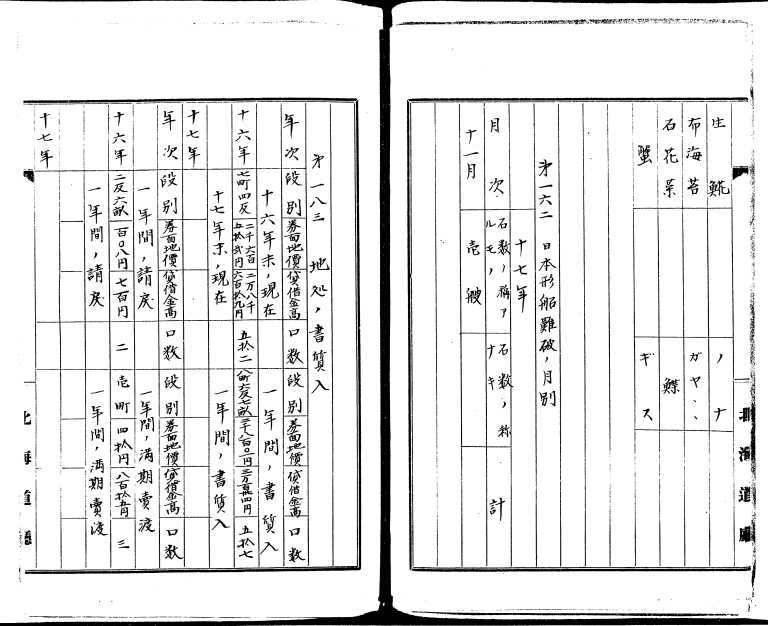 生鯡 ノナ
布海苔 ガヤ、、
石花菜 鰈
蟹 ギス
第一六二 日本形船難破ノ月別
十七年
月次 石数ノ稱アルモノ 石数ノ称ナキ 計
十一月 壱艘
北海道廳
第一八三 地処ノ書質入
年次 段別 券面地價 貸借金高 口数 段別 券面地價 貸借金高 口数
十六年末ノ現在 一年間ノ書質入
十六年 七町四反 二千六百五拾弐円 二万八千六百拾九円 五拾二 五拾七
十七年末ノ現在 一年間ノ書質入
十七年
年次 段別 券面地價 貸借金高 口数 段別 券面地價 貸借金高 口数
一年間ノ請戻 一年間ノ満期賣渡
十六年 二反六畝 百〇八円 七百円 二 壱町 四拾円 八百拾五円 三
一年間ノ請戻 一年間ノ満期賣渡
十七年
北海道廳